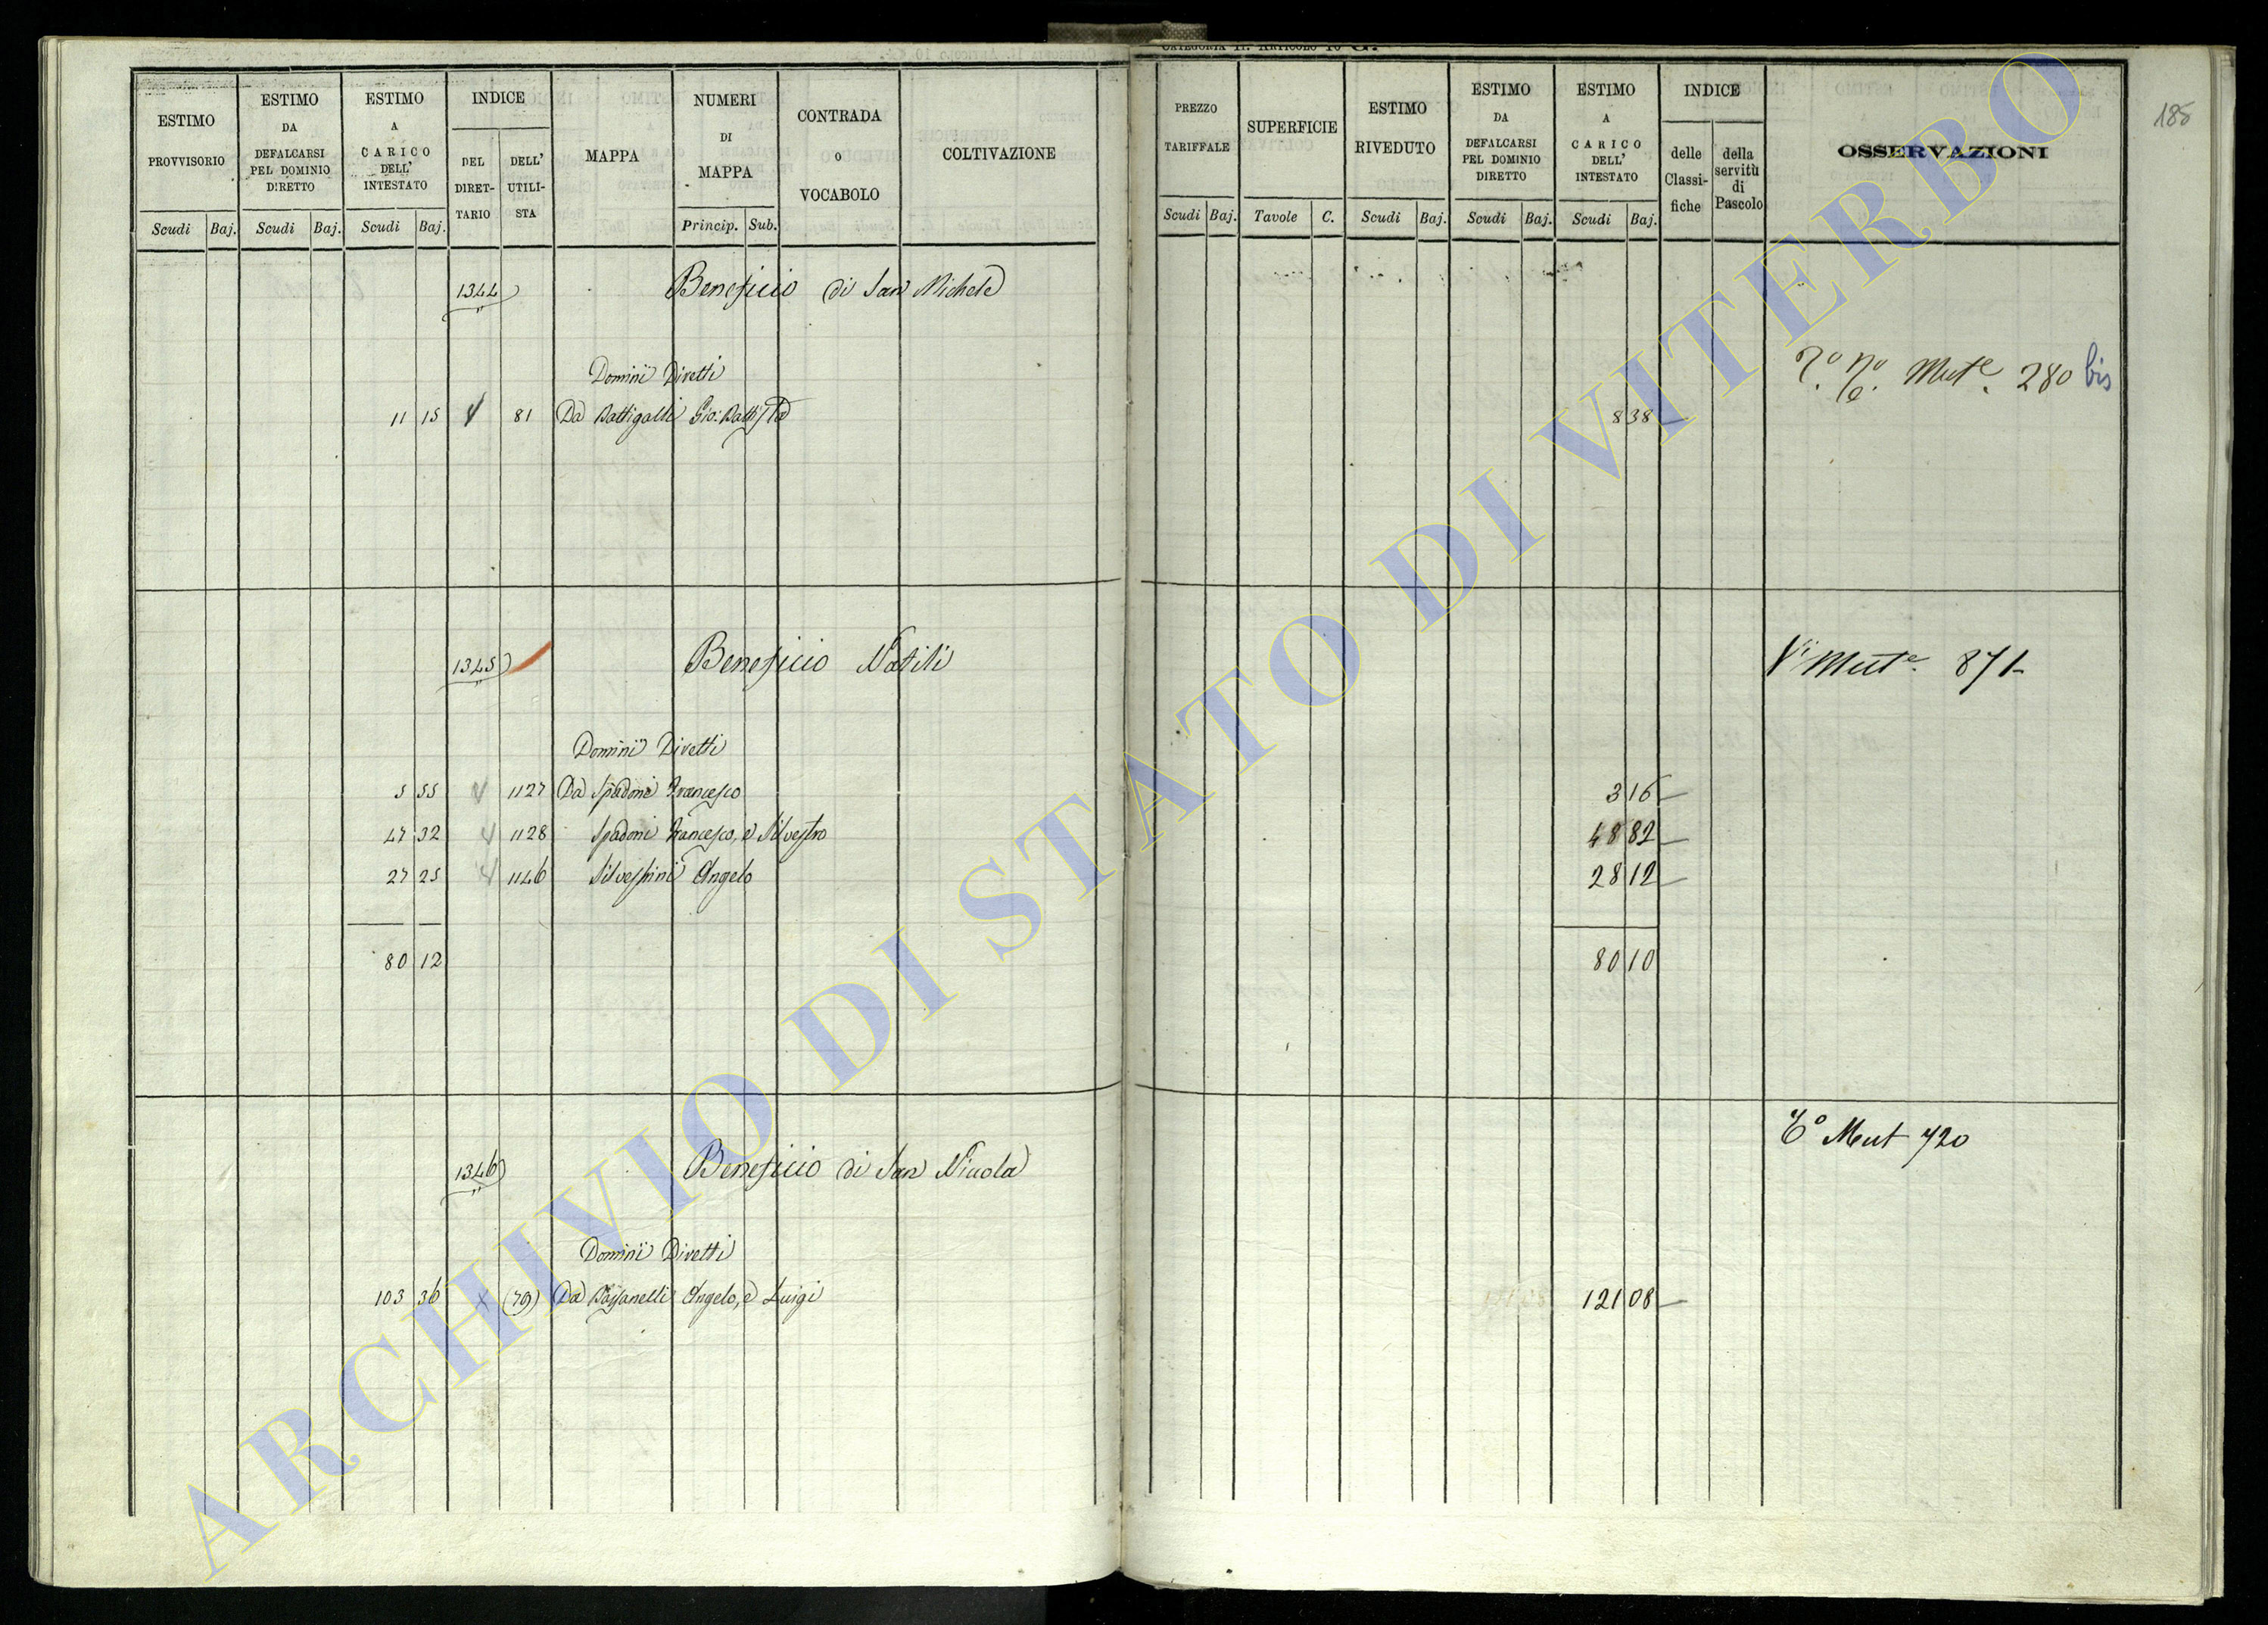 CATEGORIA II. ARTICOLO 10 G.
185
ESTIMO PROVVISORIO
ESTIMO DA DEFALCARSI PEL DOMINIO DIRETTO
ESTIMO A CARICO DELL' INTESTATO
INDICE
DEL DIRETTARIO
DELL' UTILISTA
MAPPA
NUMERI DI MAPPA
CONTRADA O VOCABOLO
COLTIVAZIONE
Scudi Baj. Scudi Baj. Scudi Baj. Princip. Sub.
PREZZO TARIFFALE
SUPERFICIE
ESTIMO RIVEDUTO
ESTIMO DA DEFALCARSI PEL DOMINIO DIRETTO
ESTIMO A CARICO DELL' INTESTATO
INDICE
delle Classifiche
della servitù di Pascolo
OSSERVAZIONI
Scudi Baj. Tavole C. Scudi Baj. Scudi Baj. Scudi Baj.
1344 Beneficio di San Michele
Mut.e 280 bis
Dominii Diretti
11 15 81 Da Battigalli Gio: Battista 8 38
1345 Beneficio Natili
Mut.e 871
Dominii Diretti
5 55 1127 Da Spadoni Francesco 3 16
47 32 1128 Spadoni Francesco, e Silvestro 48 82
27 25 1146 Silvestrini Angelo 28 12
80 12 80 10
Mut 720
1346 Beneficio di San Nicola
Dominii Diretti
103 36 (79) Da Angelo, e Luigi 121 08
ARCHIVIO DI STATO DI VITERBO